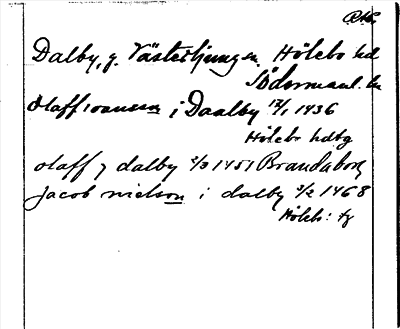 Dalby, g. Västerljung sn. Hölebo hd
Södermanl. ln
Olaff ioansson i Daalby 12/1 1436
Hölebo hdtg
olaff j dalby 2/3 1451 Brandaborg
Jacob nielson i dalby 3/2 1468
Höleb: tg